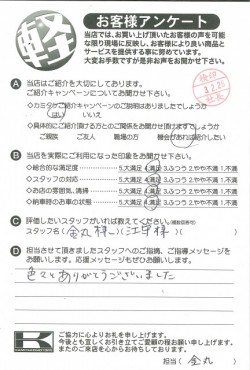 軽
お客様アンケート
当店では、お買い上げ頂いたお客様の声を可能
な限り現場に反映し、お客様により良い商品と
サービスを提供する事に努めています。
大変お手数ですが是非お声をお聞かせ下さい。
検印
3.2.20
Ⓐ 当店はご紹介を大切にしております。
ご紹介キャンペーンについてお聞かせ下さい。
◇カミタケご紹介キャンペーンのご説明はありましたでしょうか
はい いいえ
◇具体的にご紹介頂ける方との ご関係をお聞かせ頂けますでしょうか
ご親族 ご友人 職場の方 機会があれば紹介したい
Ⓑ 当店を実際にご利用になった印象をお聞かせ下さい。
・総合的な満足度 5.大満足 4.満足 3.ふつう 2.やや不満 1.不満
・スタッフの対応 5.大満足 4.満足 3.ふつう 2.やや不満 1.不満
・お店の雰囲気、清掃 5.大満足 4.満足 3.ふつう 2.やや不満 1.不満
・納車時のお車の状態 5.大満足 4.満足 3.ふつう 2.やや不満 1.不満
Ⓒ 評価したいスタッフがいれば教えてください。(複数回答可)
スタッフ名 ( 金丸様 ) ( 江早様 ) ( )
Ⓓ 担当させて頂きましたスタッフへのご指摘、ご指導メッセージを
お願いします。応援メッセージもぜひお願いします。
色々とありがとうございました
K
ご協力に心よりお礼を申し上げます。
今後とも宜しくお引き立てご愛顧の程お願い申し上げます。
またのご来店を心からお待ちしております。
担当 ( 金丸 )